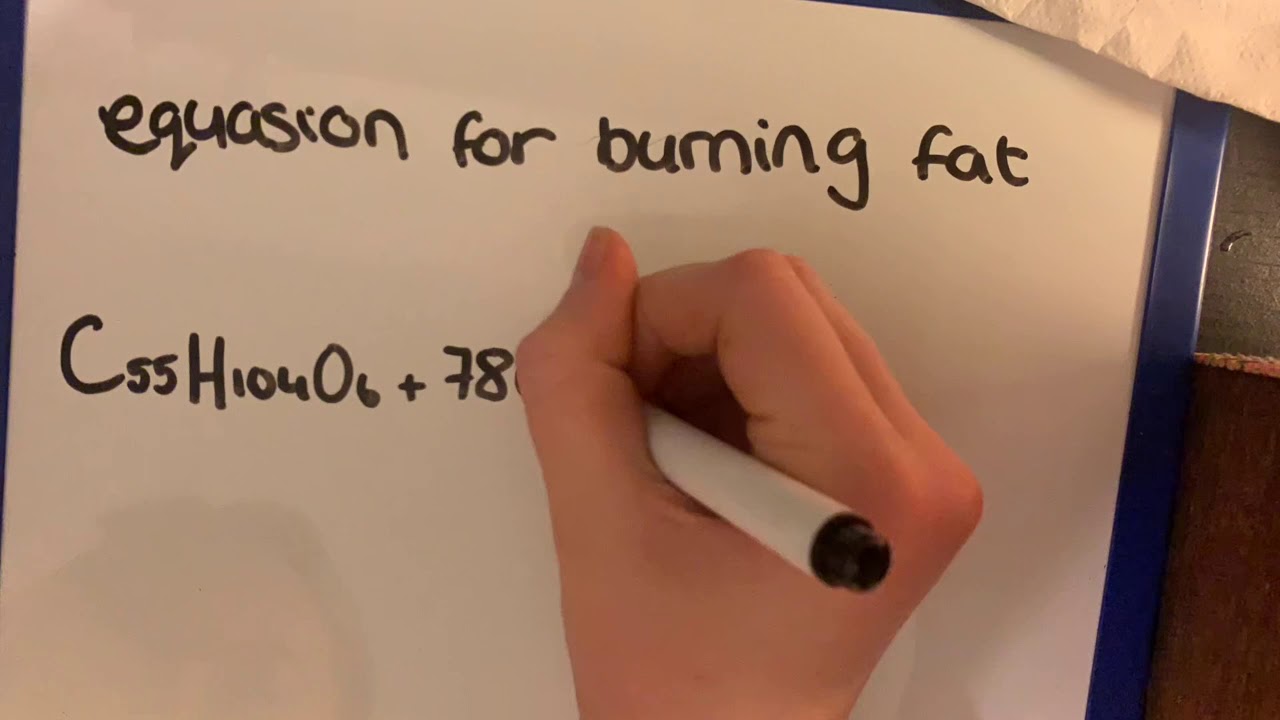 equasion for burning fat
C₅₅H₁₀₄O₆ + 78